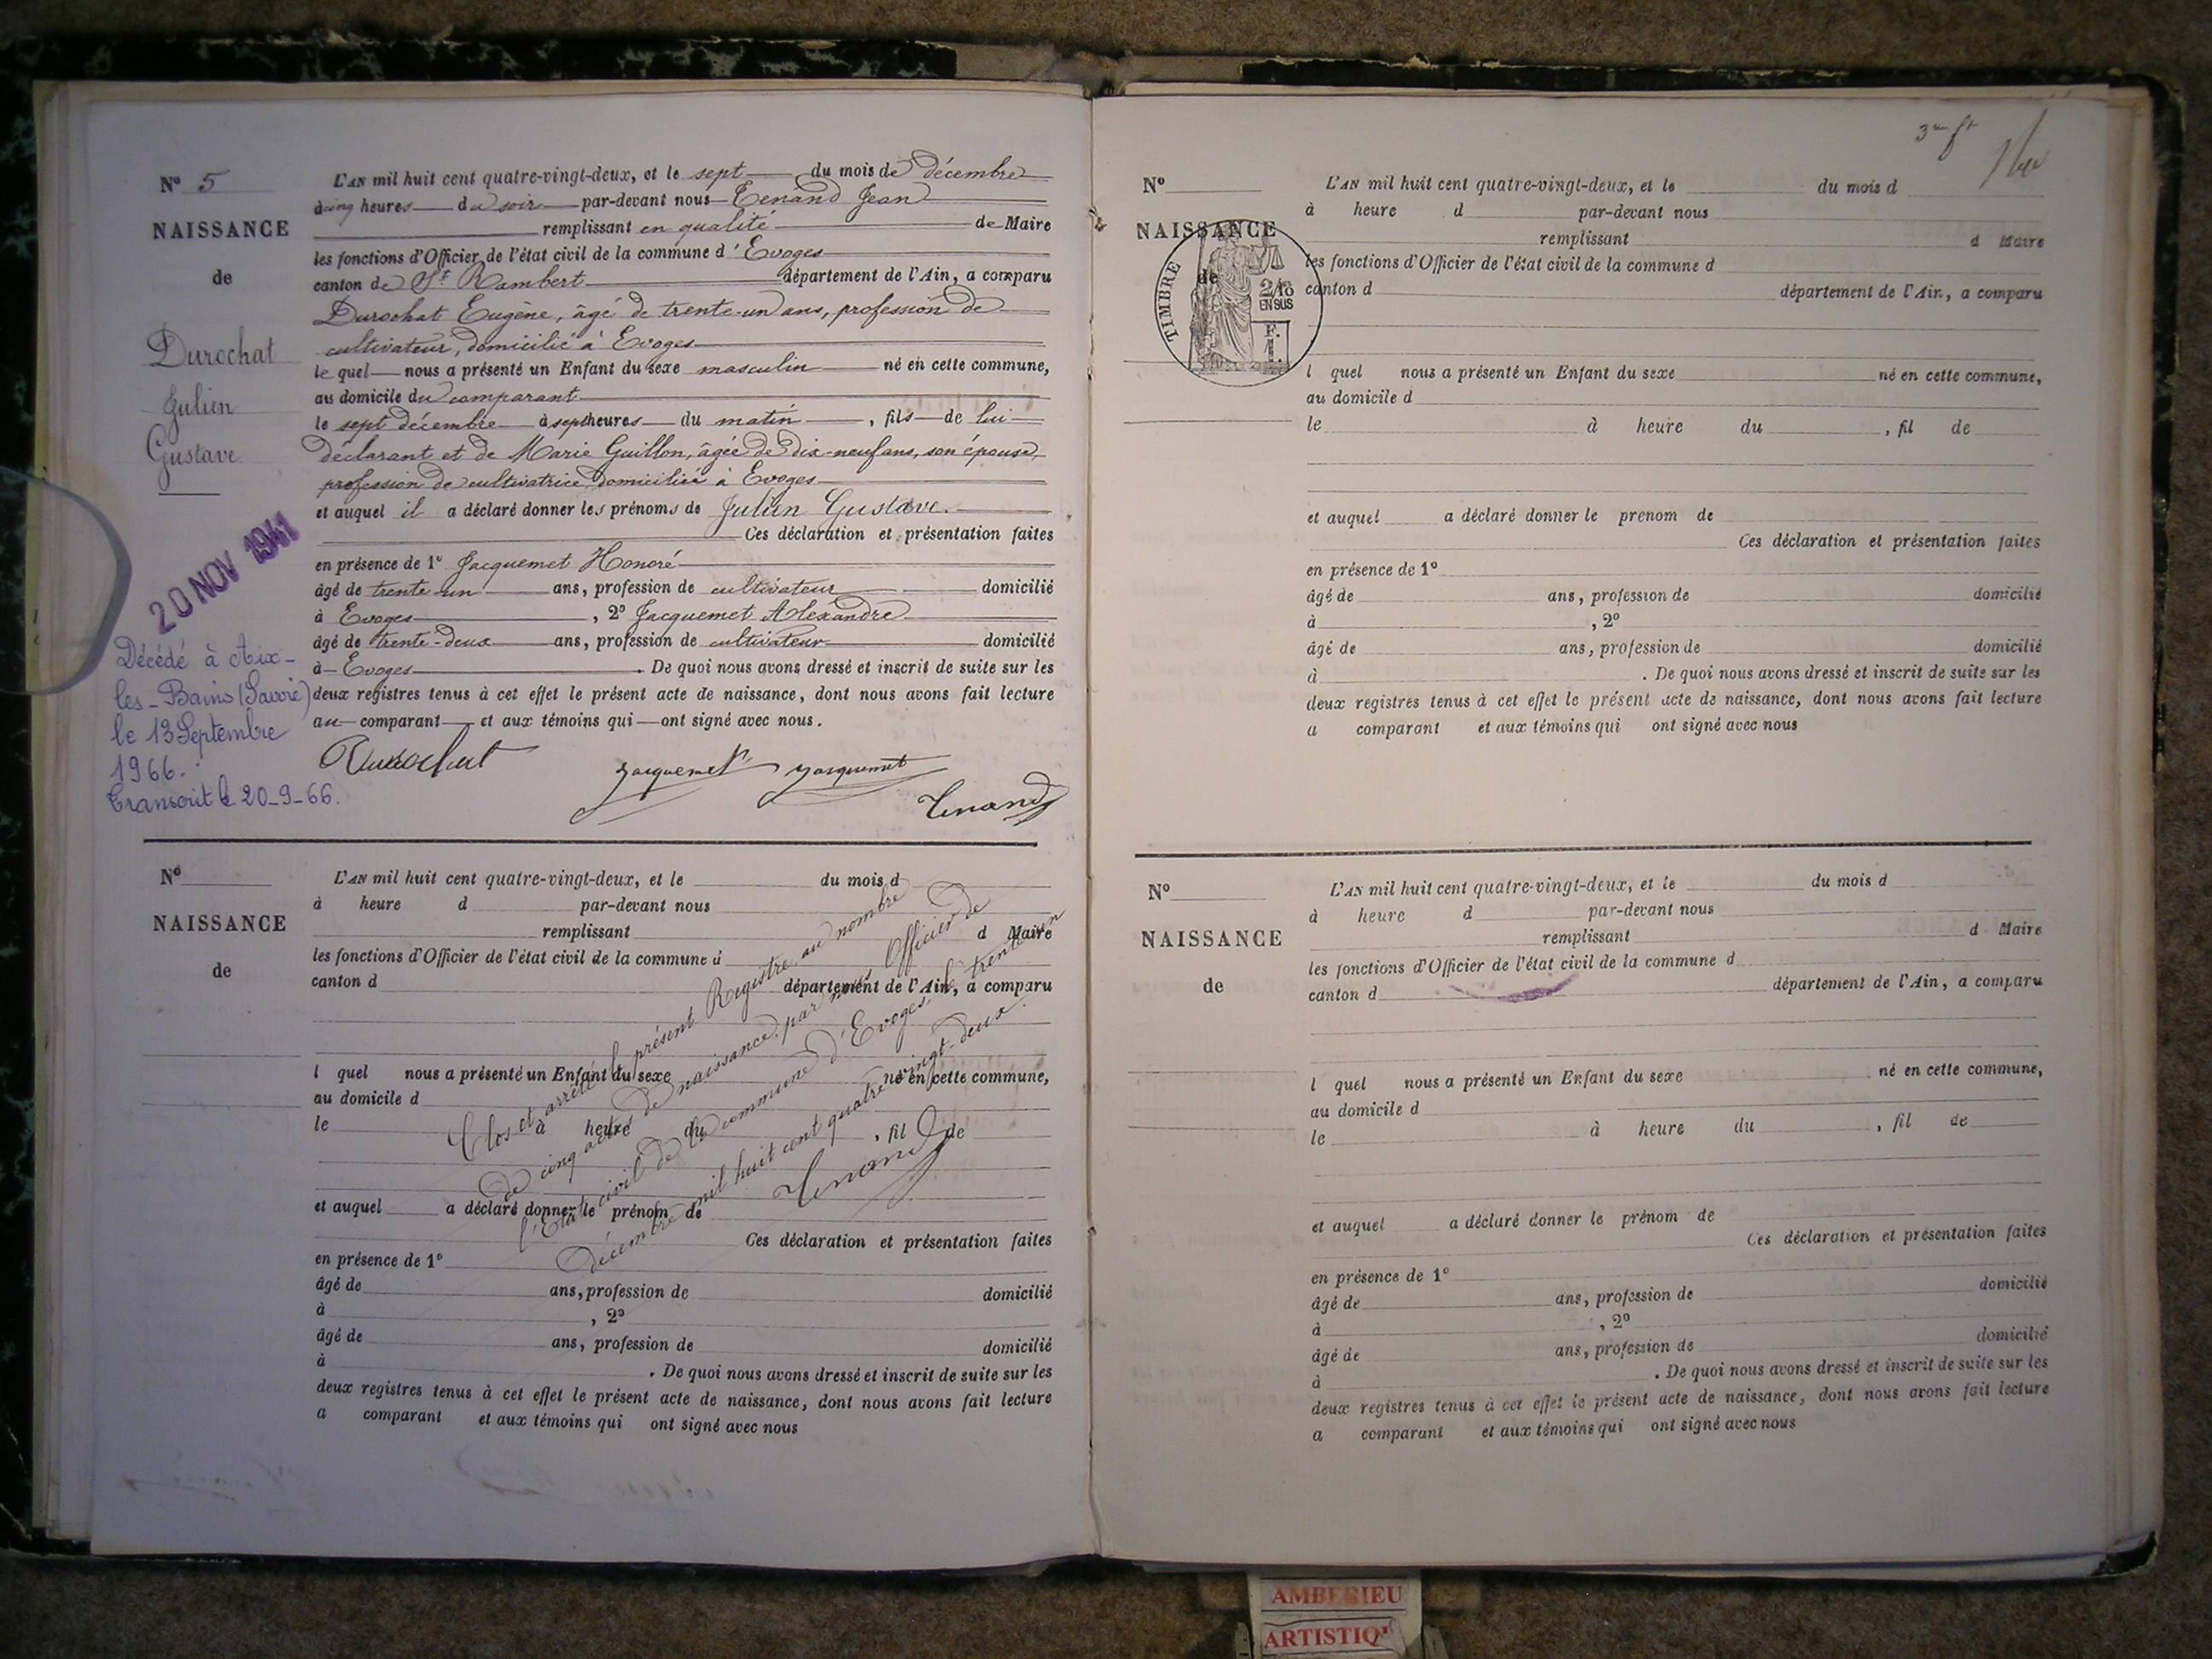 N° 5
NAISSANCE
de
Durochat
Julien
Gustave.
20 NOV 1941
Décédé à Aix-
les-Bains (Savoie)
le 13 Septembre
1966.
Transcrit le 20-9-66.
L'AN mil huit cent quatre-vingt-deux, et le sept du mois de décembre
à cinq heures du soir par-devant nous Tenand Jean
remplissant en qualité de Maire
les fonctions d'Officier de l'état civil de la commune d'Evoges
canton de St Rambert département de l'Ain, a comparu
Durochat Eugène, âgé de trente-un ans, profession de
cultivateur, domicilié à Evoges
lequel nous a présenté un Enfant du sexe masculin né en cette commune,
au domicile du comparant
le sept décembre à sept heures du matin, fils de lui
déclarant et de Marie Guillon, âgée de dix-neuf ans, son épouse,
profession de cultivatrice, domiciliée à Evoges
et auquel il a déclaré donner les prénoms de Julien Gustave.
Ces déclaration et présentation faites
en présence de 1° Jacquemet Honoré
âgé de trente-un ans, profession de cultivateur domicilié
à Evoges, 2° Jacquemet Alexandre
âgé de trente-deux ans, profession de cultivateur domicilié
à Evoges. De quoi nous avons dressé et inscrit de suite sur les
deux registres tenus à cet effet le présent acte de naissance, dont nous avons fait lecture
au comparant et aux témoins qui ont signé avec nous.
Durochat Jacquemet Jacquemet Tenand
N°
NAISSANCE
de
L'AN mil huit cent quatre-vingt-deux, et le du mois d
à heure d par-devant nous
remplissant d Maire
les fonctions d'Officier de l'état civil de la commune d
canton d département de l'Ain, a comparu
l quel nous a présenté un Enfant du sexe né en cette commune,
au domicile d
le à heure du , fil de
et auquel a déclaré donner le prénom de
Ces déclaration et présentation faites
en présence de 1°
âgé de ans, profession de domicilié
à , 2°
âgé de ans, profession de domicilié
à . De quoi nous avons dressé et inscrit de suite sur les
deux registres tenus à cet effet le présent acte de naissance, dont nous avons fait lecture
a comparant et aux témoins qui ont signé avec nous
Clos et arrêté le présent Registre au nombre
de cinq actes de naissance, par nous Officier de
l'Etat civil de la commune d'Evoges, le trente-un
décembre mil huit cent quatre vingt-deux.
Tenand
3me ft
N°
NAISSANCE
de
TIMBRE
2/10
EN SUS
F.
1.
L'AN mil huit cent quatre-vingt-deux, et le du mois d
à heure d par-devant nous
remplissant d Maire
les fonctions d'Officier de l'état civil de la commune d
canton d département de l'Ain, a comparu
l quel nous a présenté un Enfant du sexe né en cette commune,
au domicile d
le à heure du , fil de
et auquel a déclaré donner le prenom de
Ces déclaration et présentation faites
en présence de 1°
âgé de ans, profession de domicilié
à , 2°
âgé de ans, profession de domicilié
à . De quoi nous avons dressé et inscrit de suite sur les
deux registres tenus à cet effet le présent acte de naissance, dont nous avons fait lecture
a comparant et aux témoins qui ont signé avec nous
N°
NAISSANCE
de
L'AN mil huit cent quatre-vingt-deux, et le du mois d
à heure d par-devant nous
remplissant d Maire
les fonctions d'Officier de l'état civil de la commune d
canton d département de l'Ain, a comparu
l quel nous a présenté un Enfant du sexe né en cette commune,
au domicile d
le à heure du , fil de
et auquel a déclaré donner le prénom de
Ces déclaration et présentation faites
en présence de 1°
âgé de ans, profession de domicilié
à , 2°
âgé de ans, profession de domicilié
à . De quoi nous avons dressé et inscrit de suite sur les
deux registres tenus à cet effet le présent acte de naissance, dont nous avons fait lecture
a comparant et aux témoins qui ont signé avec nous
AMBERIEU
ARTISTIQ